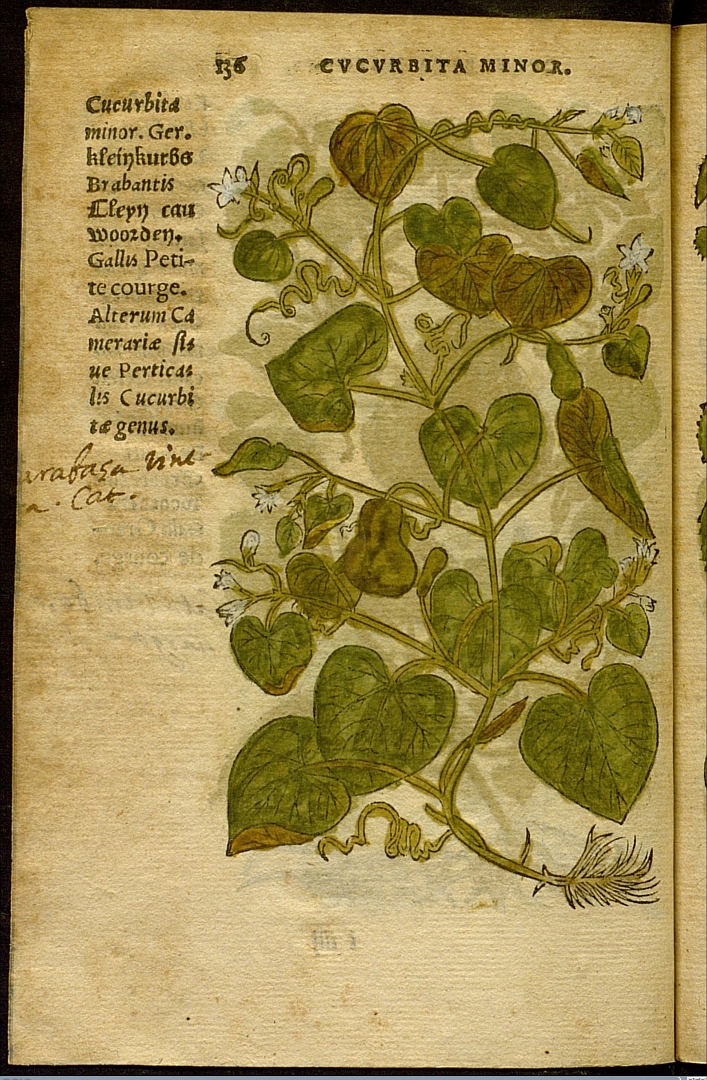 136 CVCVRBITA MINOR.
Cucurbita
minor. Ger.
kleinkurbs
Brabantis
Cleyn cau
woorden.
Gallis Peti-
te courge.
Alterum Ca
merariæ si-
ue Pertica-
lis Cucurbi
tæ genus.
Cat.